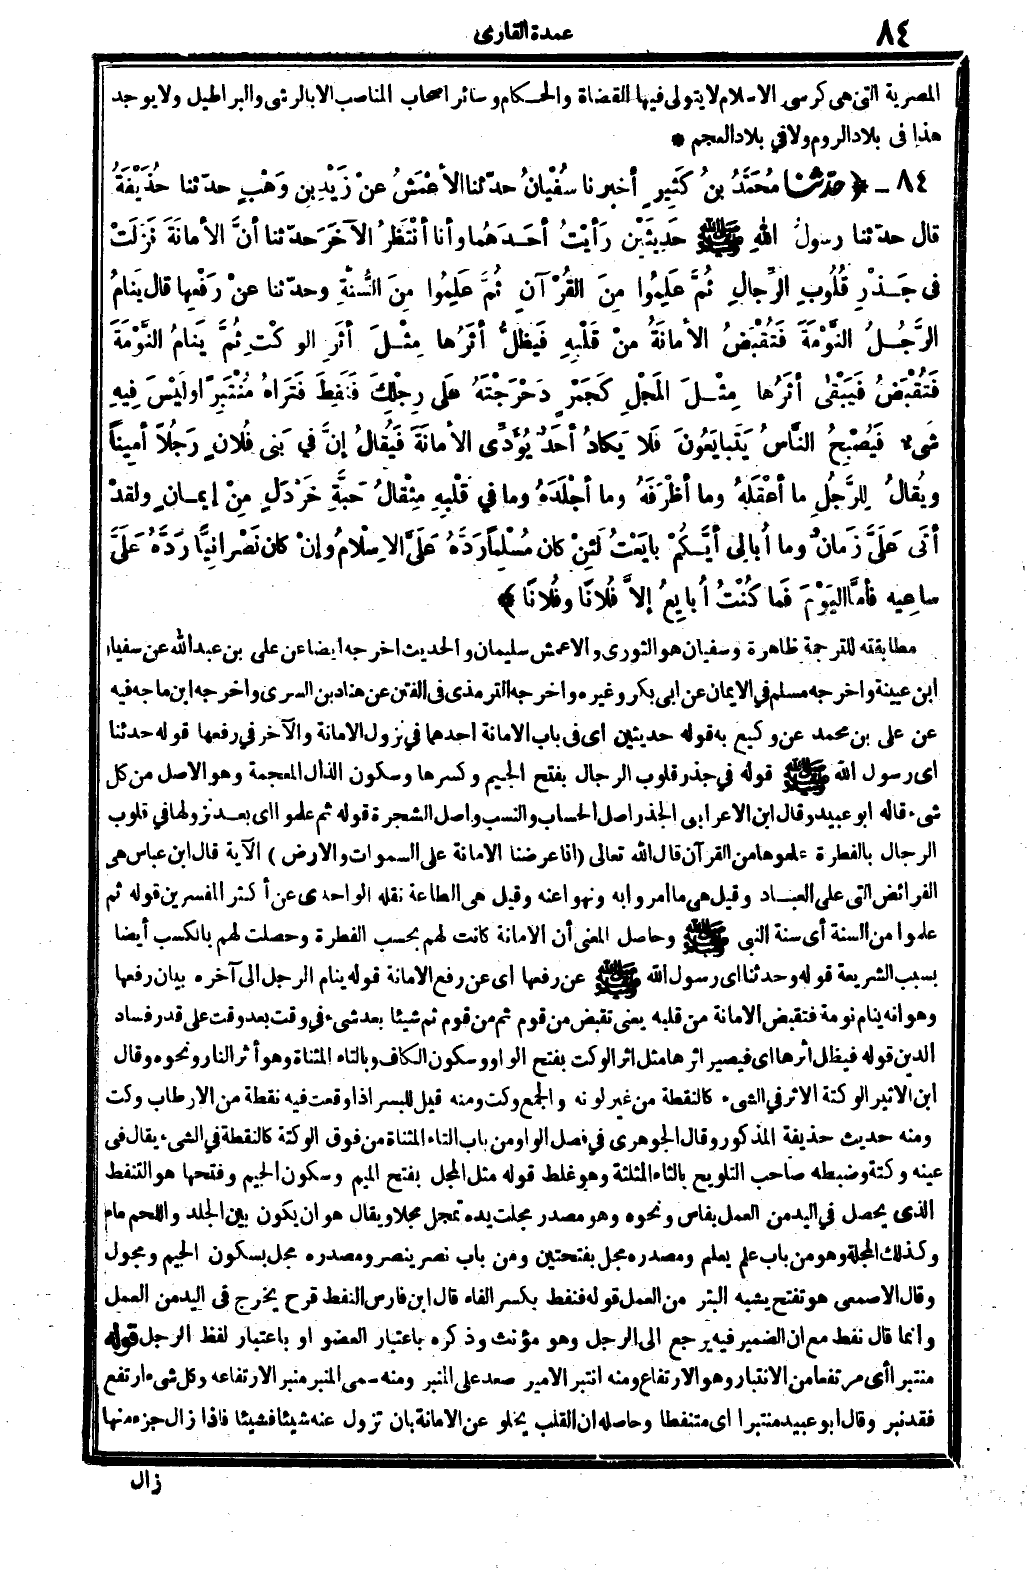 ٨٤
عمدة القارئ
المصرية التى هى كرسى الاسلام لا يتولى فيها القضاة والحكام وسائر اصحاب المناصب الا بالرشى والبراطيل ولا يوجد
هذا فى بلاد الروم ولا في بلاد العجم *
٨٤ - ﴿ حدّثنا مُحَمَّدُ بنُ كَثِيرٍ أخبرنا سُفْيانُ حدّثنا الأَعْمَشُ عنْ زَيْدِ بنِ وَهْبٍ حدّثنا حُذَيْفَةُ
قال حدّثنا رسولُ اللهِ ﷺ حَدِيثَيْنِ رَأَيْتُ أحَدَهُما وأنا أنْتَظِرُ الآخَرَ حدّثنا أنَّ الأمانَةَ نَزَلَتْ
فى جَذْرِ قُلُوبِ الرِّجالِ ثُمَّ عَلِمُوا مِنَ القُرْآنِ ثُمَّ عَلِمُوا مِنَ السُّنةِ وحدّثنا عنْ رَفْعِها قال يَنامُ
الرَّجُلُ النَّوْمَةَ فَتُقْبَضُ الأمانَةُ منْ قَلْبِهِ فَيَظَلُّ أثَرُها مِثْلَ أثَرِ الوَكْتِ ثُمَّ يَنامُ النَّوْمَةَ
فَتُقْبَضُ فَيَبْقٰى أثَرُها مِثْلَ المَجْلِ كَجَمْرٍ دَحْرَجْتَهُ عَلى رِجْلِكَ فَنَفِطَ فَتَراهُ مُنْتَبِرًا ولَيْسَ فِيهِ
شَىْء فَيُصْبِحُ النَّاسُ يَتَبايَعُونَ فَلا يَكادُ أحَدٌ يُؤَدِّى الأمانَةَ فَيُقالُ إنَّ في بَنى فُلانٍ رَجُلاً أمِيناً
ويُقالُ لِلرَّجُلِ ما أعْقَلَهُ وما أظْرَفَهُ وما أجْلَدَهُ وما في قَلْبِهِ مِثْقالُ حَبَّةِ خَرْدَلٍ مِنْ إيمانٍ ولقدْ
أتَى عَلَىَّ زَمانٌ وما أُبالِى أيَّكُمْ بايَعْتُ لَئِنْ كان مُسْلِماً رَدَّهُ عَلَىَّ الاسْلامُ وإنْ كان نَصْرانِيًّا رَدَّهُ عَلَىَّ
ساعِيهِ فَأمَّا اليَوْمَ فَما كُنْتُ أُبايِعُ إلاَّ فُلانًا وفُلانًا ﴾
مطابقته للترجمة ظاهرة وسفيان هو الثورى والاعمش سليمان والحديث اخرجه ايضا عن على بن عبدالله عن سفيان
ابن عيينة واخرجه مسلم في الايمان عن ابى بكر وغيره واخرجه الترمذى فى الفتن عن هناد بن السرى واخرجه ابن ماجه فيه
عن على بن محمد عن وكيع به قوله حديثين اى فى باب الامانة احدهما في نزول الامانة والآخر في رفعها قوله حدثنا
اى رسول الله ﷺ قوله في جذر قلوب الرجال بفتح الجيم وكسرها وسكون الذال المعجمة وهو الاصل من كل
شىء قاله ابو عبيد وقال ابن الاعرابى الجذر اصل الحساب والنسب واصل الشجرة قوله ثم علموا اى بعد نزولها في قلوب
الرجال بالفطرة علموها من القرآن قال الله تعالى (انا عرضنا الامانة على السموات والارض) الآية قال ابن عباس هى
الفرائض التى على العباد وقيل هى ما امروا به ونهوا عنه وقيل هى الطاعة نقله الواحدى عن أكثر المفسرين قوله ثم
علموا من السنة أى سنة النبى ﷺ وحاصل المعنى أن الامانة كانت لهم بحسب الفطرة وحصلت لهم بالكسب أيضا
بسبب الشريعة قوله وحدثنا اى رسول الله ﷺ عن رفعها اى عن رفع الامانة قوله ينام الرجل الى آخره بيان رفعها
وهو انه ينام نومة فتقبض الامانة من قلبه يعنى تقبض من قوم ثم من قوم ثم شيئا بعد شىء في وقت بعد وقت على قدر فساد
الدين قوله فيظل اثرها اى فيصير اثرها مثل اثر الوكت بفتح الواو وسكون الكاف وبالتاء المثناة وهو أثر النار ونحوه وقال
ابن الاثير الوكتة الاثر في الشىء كالنقطة من غير لونه والجمع وكت ومنه قيل للبسر اذا وقعت فيه نقطة من الارطاب وكت
ومنه حديث حذيفة المذكور وقال الجوهرى في فصل الواو من باب التاء المثناة من فوق الوكتة كالنقطة في الشىء يقال فى
عينه وكتة وضبطه صاحب التلويح بالثاء المثلثة وهو غلط قوله مثل المجل بفتح الميم وسكون الجيم وفتحها هو التنفط
الذى يحصل في اليد من العمل بفاس ونحوه وهو مصدر مجلت يده تمجل مجلا ويقال هو ان يكون بين الجلد واللحم ماء
وكذلك المجلة وهو من باب علم يعلم ومصدره مجل بفتحتين ومن باب نصر ينصر ومصدره مجل بسكون الجيم ومجول
وقال الاصمعى هو تفتح يشبه البثر من العمل قوله فنفط بكسر الفاء قال ابن فارس النفط قرح يخرج فى اليد من العمل
وانما قال نفط مع ان الضمير فيه يرجع الى الرجل وهو مؤنث وذكره باعتبار العضو او باعتبار لفظ الرجل قوله
منتبرا أى مرتفعا من الانتبار وهو الارتفاع ومنه انتبر الامير صعد على المنبر ومنه سمى المنبر منبرا لارتفاعه وكل شىء ارتفع
فقد نبر وقال ابو عبيد منتبرا اى متنفطا وحاصله ان القلب يخلو عن الامانة بان تزول عنه شيئا فشيئا فاذا زال جزء منها
زال